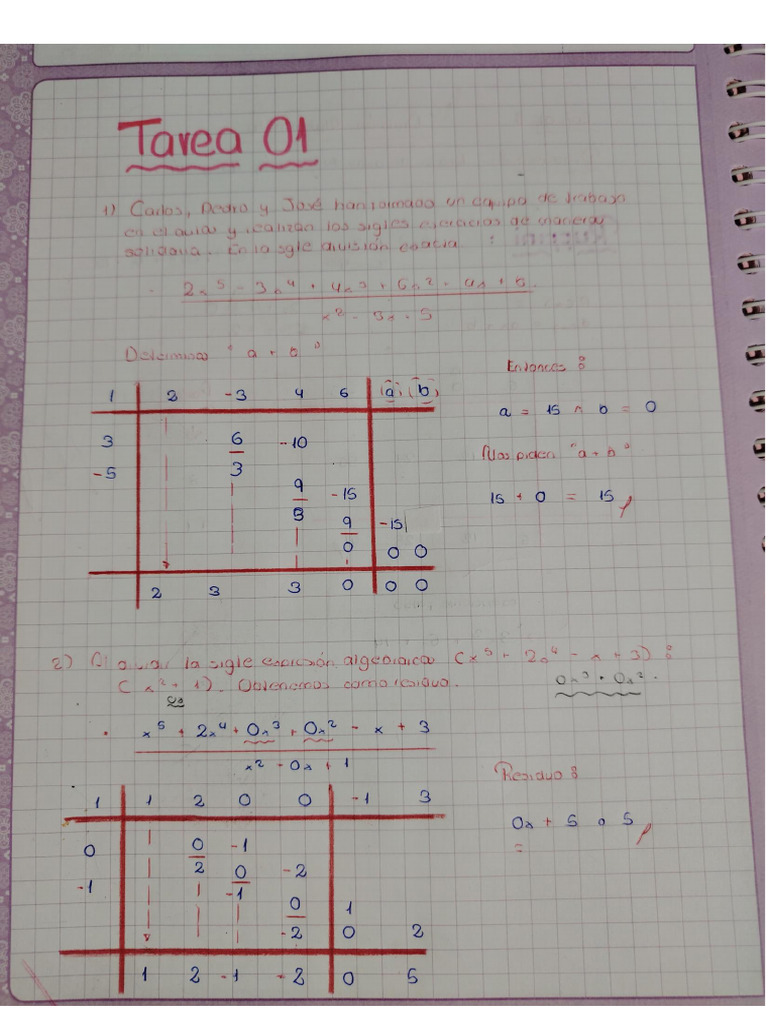 Tarea 01
1) Carlos, Pedro y José han formado un equipo de trabajo
en el aula y realizan los sigtes ejercicios de manera
solidaria. En la sgte división exacta :
2x⁵ - 3x⁴ + 4x³ + 6x² + ax + b
x² - 3x + 5
Determinar "a + b"
1 2 -3 4 6 (a) (b)
3 6 -10
-5 3
9 -15
3
9 -15
0 0 0
2 3 3 0 0 0
Entonces :
a = 15 ^ b = 0
Nos piden "a + b"
15 + 0 = 15
2) Al la sigte expresión algebraica (x⁵ + 2x⁴ - x + 3) :
(x² + 1). Obtenemos como residuo. 0x³ + 0x².
x⁵ + 2x⁴ + 0x³ + 0x² - x + 3
x² - 0x + 1
1 1 2 0 0 -1 3
0 0 -1
-1 2 0 -2
-1 0 1
-2 0 2
1 2 -1 -2 0 5
Residuo :
0x + 5 o 5
=